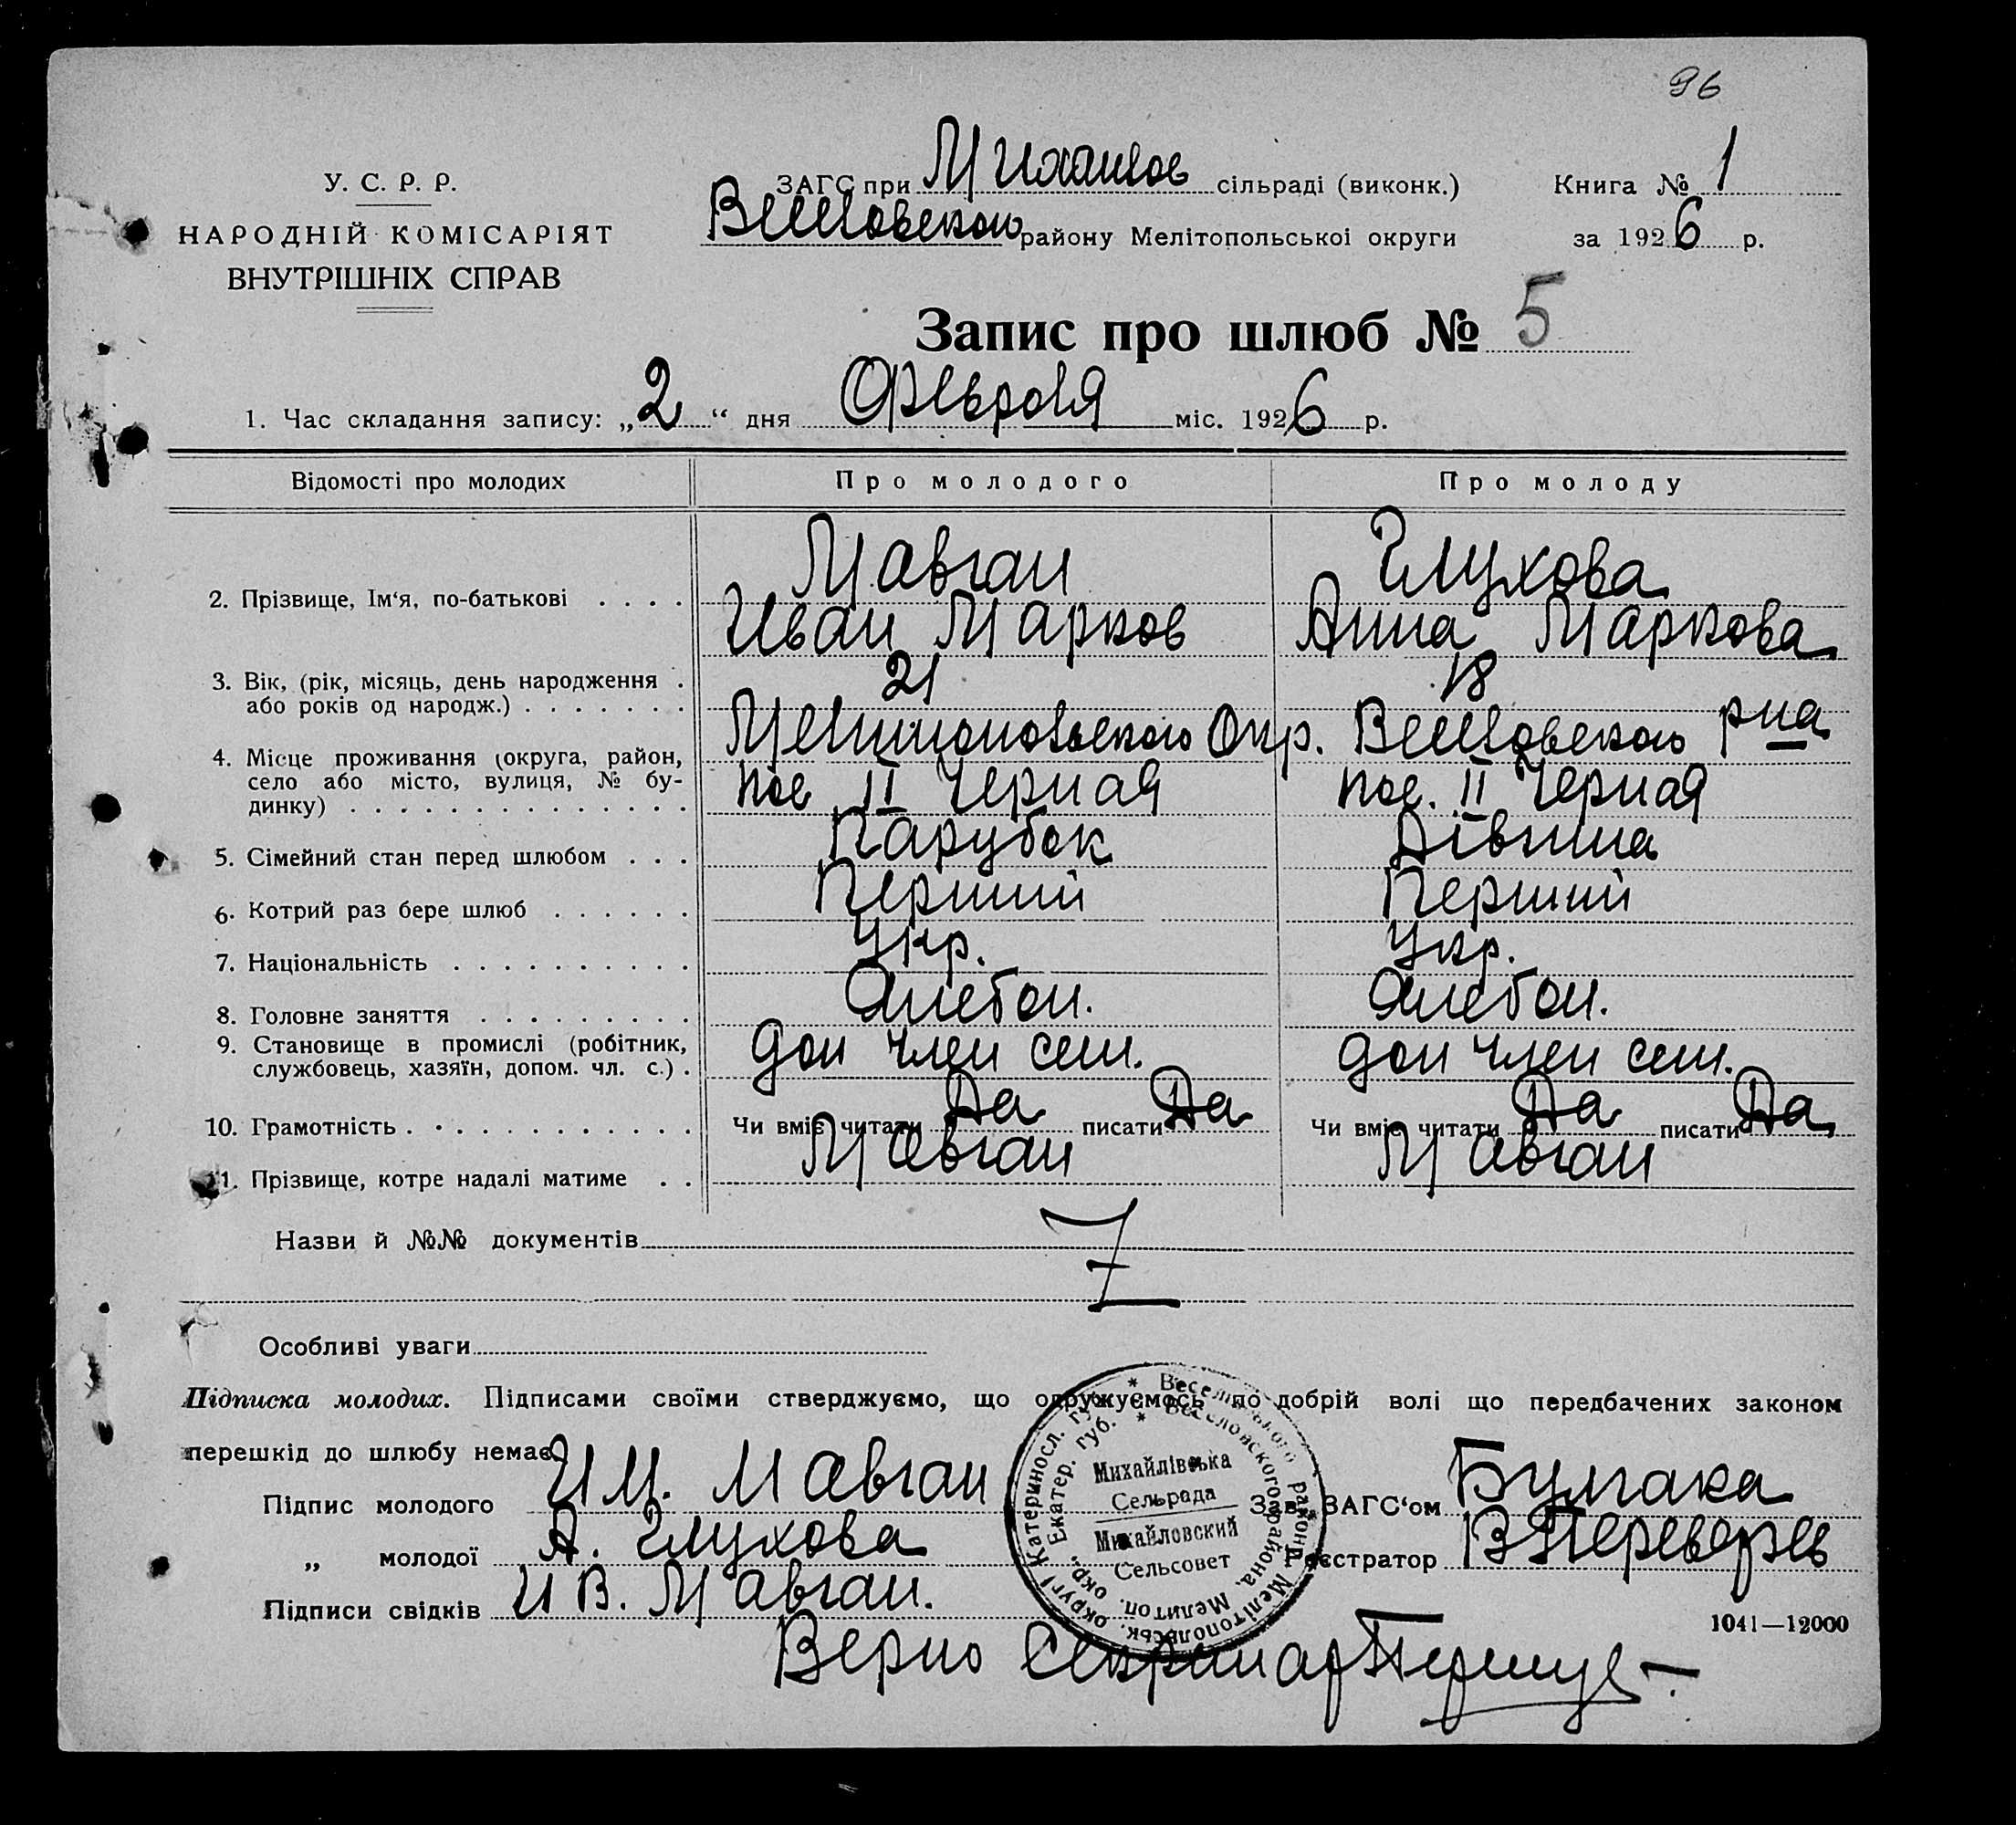 96
У. С. Р. Р.
НАРОДНІЙ КОМІСАРІЯТ
ВНУТРІШНІХ СПРАВ
ЗАГС при Михайлов сільраді (виконк.)
Веселовского району Мелітопольської округи
Книга № 1
за 1926 р.
Запис про шлюб № 5
1. Час складання запису: „2“ дня Февраля міс. 1926 р.
Відомості про молодих Про молодого Про молоду
2. Прізвище, Ім‘я, по-батькові . . . . Мавган Глухова
Иван Марков Анна Маркова
3. Вік, (рік, місяць, день народження . 21 18
або років од народж.) . . . . . . .
4. Місце проживання (округа, район, Мелитопольского Окр. Веселовского рна
село або місто, вулиця, № бу- пос II Черная пос. II Черная
динку) . . . . . . . . . . . . . .
5. Сімейний стан перед шлюбом . . . Парубок Дівчина
6. Котрий раз бере шлюб . . . . . . Перший Перший
7. Національність . . . . . . . . . . Укр. Укр.
8. Головне заняття . . . . . . . . . Хлебоп. Хлебоп.
9. Становище в промислі (робітник, доп член сем. доп член сем.
службовець, хазяїн, допом. чл. с.) .
10. Грамотність . . . . . . . . . . . . Чи вміє читати Да писати Да Чи вміє читати Да писати Да
11. Прізвище, котре надалі матиме . . Мавган Мавган
Назви й №№ документів
Z
Особливі уваги
Підписка молодих. Підписами своїми стверджуємо, що одружуємось по добрій волі що передбачених законом
перешкід до шлюбу немає.
Підпис молодого И М. Мавган Зав. ЗАГС‘ом Булгака
„ молодої А. Глухова Реєстратор
Підписи свідків И В. Мавган.
1041—12000
Катериносл. губ. * Веселівського району Мелітопольськ. округи
Екатер. губ. * Веселовского района, Мелитоп. окр.
Михайлівська
Сельрада
Михайловский
Сельсовет
Верно Секретар